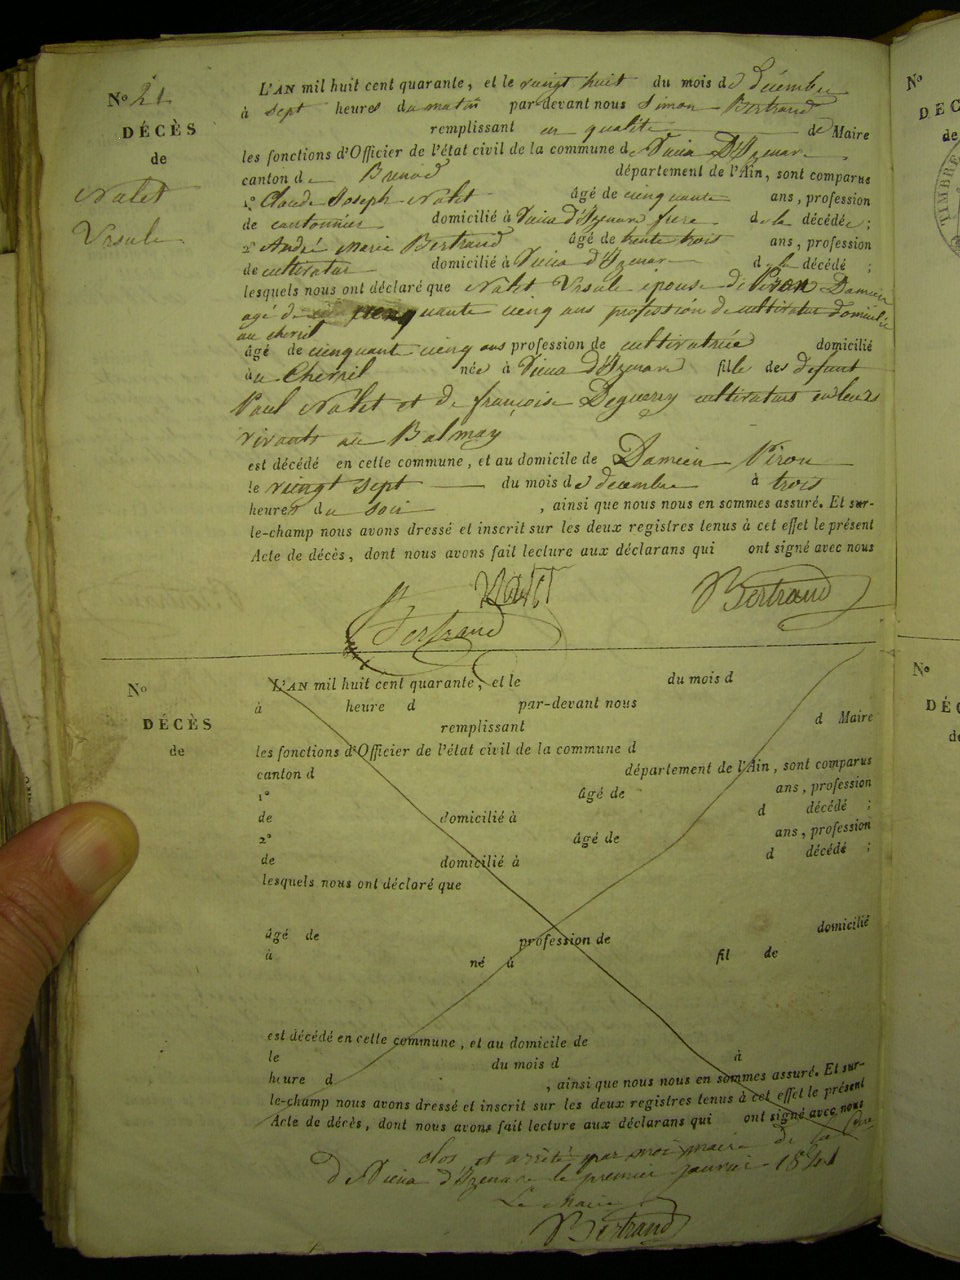 N° 21
DÉCÈS
de
Nalet
Ursule
L'AN mil huit cent quarante, et le vingt huit du mois de décembre
à sept heures du matin par-devant nous Simon Bertrand
remplissant en qualité de Maire
les fonctions d'Officier de l'état civil de la commune de Vieu D'Izenave
canton de Brenod département de l'Ain, sont comparus
1° Claude Joseph Nalet âgé de cinquante ans, profession
de cantonnier domicilié à Vieu d'Izenave frere de la décédée ;
2° André Marie Bertrand âgé de trente trois ans, profession
de cultivateur domicilié à Vieu d'Izenave d la décédé ;
lesquels nous ont déclaré que Nalet Ursule épouse de Piron Damien
agé de cinquante cinq ans profession de cultivateur domicilié
au chevril
âgé de cinquante cinq ans profession de cultivatrice domicilié
au Chevril née à Vieu d'Izenave fille des defunt
Paul Nalet et de françoise cultivateurs en leurs
vivants au Balmay
est décédé en cette commune, et au domicile de Damien Piron
le vingt sept du mois de decembre à trois
heures du soir , ainsi que nous nous en sommes assuré. Et sur-
le-champ nous avons dressé et inscrit sur les deux registres tenus à cet effet le présent
Acte de décès, dont nous avons fait lecture aux déclarans qui ont signé avec nous
Nalet Bertrand
Bertrand
N°
DÉCÈS
de
L'AN mil huit cent quarante, et le du mois d
à heure d par-devant nous
remplissant d Maire
les fonctions d'Officier de l'état civil de la commune d
canton d département de l'Ain, sont comparus
1° âgé de ans, profession
de domicilié à d décédé ;
2° âgé de ans, profession
de domicilié à d décédé ;
lesquels nous ont déclaré que
âgé de profession de domicilié
à né à fil de
est décédé en cette commune, et au domicile de
le du mois d à
heure d , ainsi que nous nous en sommes assuré. Et sur-
le-champ nous avons dressé et inscrit sur les deux registres tenus à cet effet le présent
Acte de décès, dont nous avons fait lecture aux déclarans qui ont signé avec nous
clos et arrêté par moi maire de la
De Vieu d'Izenave le premier janvier 1841
Le Maire
Bertrand
N°
DÉC
de
TIMBRE
N°
DÉC
de